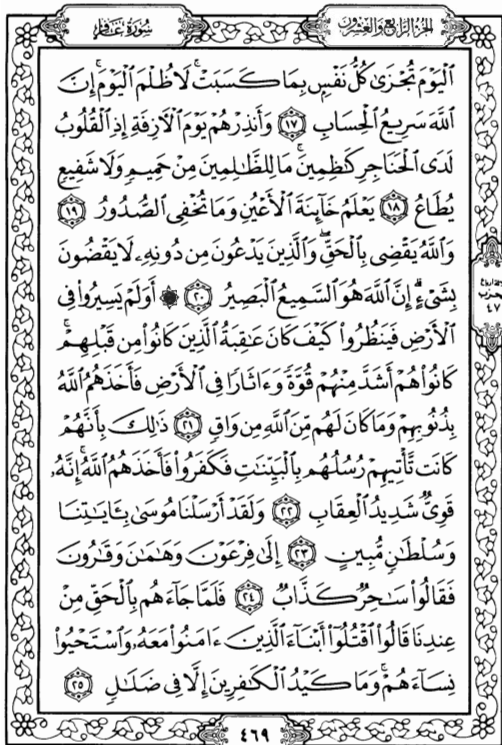 الجزء الرابع والعشرون
سورة غافر
ٱلْيَوْمَ تُجْزَىٰ كُلُّ نَفْسٍۭ بِمَا كَسَبَتْ ۚ لَا ظُلْمَ ٱلْيَوْمَ ۚ إِنَّ
ٱللَّهَ سَرِيعُ ٱلْحِسَابِ ١٧ وَأَنذِرْهُمْ يَوْمَ ٱلْأَزِفَةِ إِذِ ٱلْقُلُوبُ
لَدَى ٱلْحَنَاجِرِ كَٰظِمِينَ ۚ مَا لِلظَّٰلِمِينَ مِنْ حَمِيمٍ وَلَا شَفِيعٍ
يُطَاعُ ١٨ يَعْلَمُ خَآئِنَةَ ٱلْأَعْيُنِ وَمَا تُخْفِى ٱلصُّدُورُ ١٩
وَٱللَّهُ يَقْضِى بِٱلْحَقِّ ۖ وَٱلَّذِينَ يَدْعُونَ مِن دُونِهِۦ لَا يَقْضُونَ
بِشَىْءٍ ۗ إِنَّ ٱللَّهَ هُوَ ٱلسَّمِيعُ ٱلْبَصِيرُ ٢٠ ۞ أَوَلَمْ يَسِيرُوا۟ فِى
ٱلْأَرْضِ فَيَنظُرُوا۟ كَيْفَ كَانَ عَٰقِبَةُ ٱلَّذِينَ كَانُوا۟ مِن قَبْلِهِمْ ۚ
كَانُوا۟ هُمْ أَشَدَّ مِنْهُمْ قُوَّةً وَءَاثَارًا فِى ٱلْأَرْضِ فَأَخَذَهُمُ ٱللَّهُ
بِذُنُوبِهِمْ وَمَا كَانَ لَهُم مِّنَ ٱللَّهِ مِن وَاقٍ ٢١ ذَٰلِكَ بِأَنَّهُمْ
كَانَت تَّأْتِيهِمْ رُسُلُهُم بِٱلْبَيِّنَٰتِ فَكَفَرُوا۟ فَأَخَذَهُمُ ٱللَّهُ ۚ إِنَّهُۥ
قَوِىٌّ شَدِيدُ ٱلْعِقَابِ ٢٢ وَلَقَدْ أَرْسَلْنَا مُوسَىٰ بِـَٔايَٰتِنَا
وَسُلْطَٰنٍ مُّبِينٍ ٢٣ إِلَىٰ فِرْعَوْنَ وَهَٰمَٰنَ وَقَٰرُونَ
فَقَالُوا۟ سَٰحِرٌ كَذَّابٌ ٢٤ فَلَمَّا جَآءَهُم بِٱلْحَقِّ مِنْ
عِندِنَا قَالُوا۟ ٱقْتُلُوٓا۟ أَبْنَآءَ ٱلَّذِينَ ءَامَنُوا۟ مَعَهُۥ وَٱسْتَحْيُوا۟
نِسَآءَهُمْ ۚ وَمَا كَيْدُ ٱلْكَٰفِرِينَ إِلَّا فِى ضَلَٰلٍ ٢٥
٤٧
٤٦٩